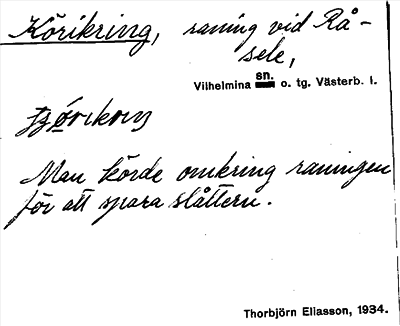 Körikring, raning vid Rå-
sele,
Vilhelmina sn. o. tg. Västerb. l.
Man körde omkring raningen
för att spara slåttern.
Thorbjörn Eliasson, 1934.